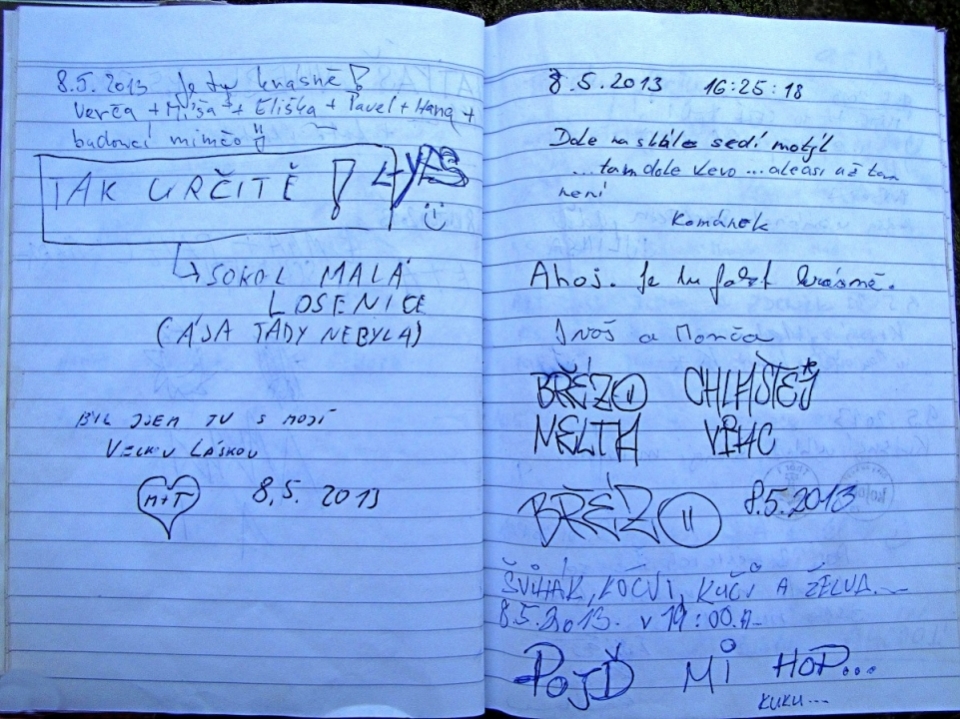 8.5. 2013 Je tu krásně!
Verča + Míša + Eliška + Pavel + Hana +
budoucí mimčo
TAK URČITĚ! YES
SOKOL MALÁ
LOSENICE
(ÁJA TADY NEBYLA)
BYL JSEM TU S MOJÍ
VELKOU LÁSKOU
M+T 8.5. 2013
8.5.2013 16:25:18
Dole na skále sedí motýl
...tam dole vevo...ale asi už tam
není
Kománek
Ahoj. Je tu fakt krásně.
a Monča
BŘÉZO
BŘÉZO 8.5.2013
ŠVIHÁK, KOČVI, KUČI A ŽELVA...
8.5.2013. v 19:00.
POJĎ MI HOP...
KUKU...